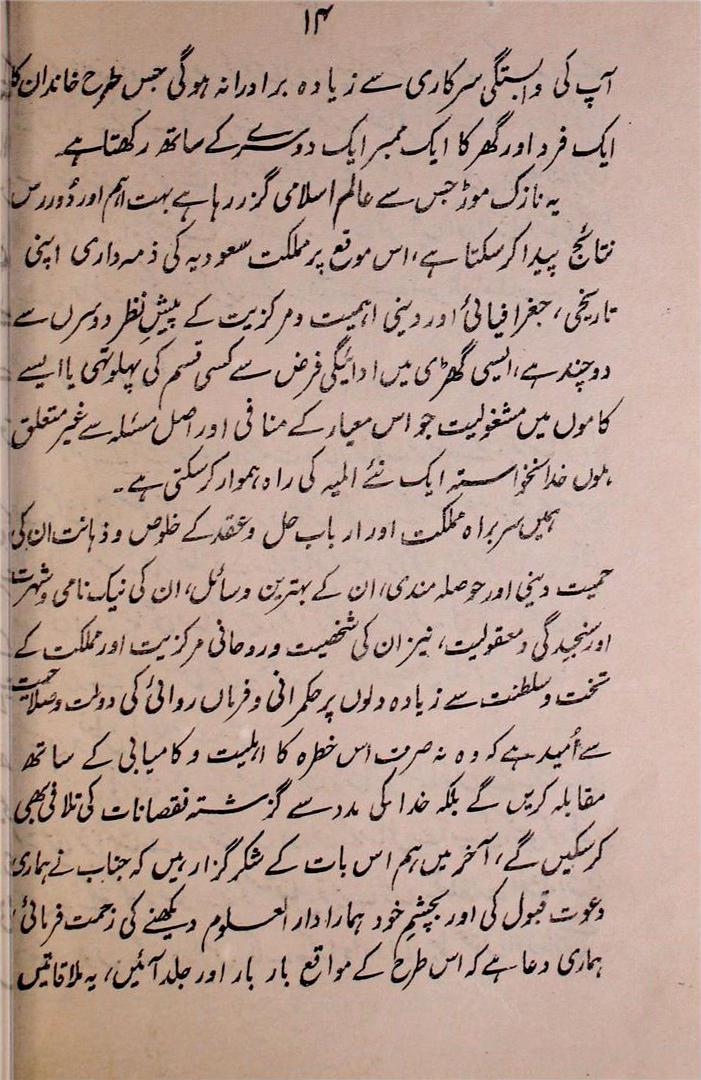 ۱۴
آپ کی وابستگی سرکاری سے زیادہ برادرانہ ہوگی جس طرح خاندان کا
ایک فرد اور گھر کا ایک ممبر ایک دوسرے کے ساتھ رکھتا ہے۔
یہ نازک موڑ جس سے عالم اسلامی گزر رہا ہے بہت اہم اور دُوررس
نتائج پیدا کرسکتا ہے، اس موقع پر مملکت سعودیہ کی ذمہ داری اپنی
تاریخی، جغرافیائی اور دینی اہمیت و مرکزیت کے پیشِ نظر دوسروں سے
دوچند ہے، ایسی گھڑی میں ادائیگی فرض سے کسی قسم کی پہلوتہی یا ایسے
کاموں میں مشغولیت جو اس معیار کے منافی اور اصل مسئلہ سے غیر متعلق
ہوں خدانخواستہ ایک نئے المیہ کی راہ ہموار کرسکتی ہے۔
ہمیں سربراہ مملکت اور ارباب حل و عقد کے خلوص و ذہانت ان کی
حمیت دینی اور حوصلہ مندی، ان کے بہترین وسائل، ان کی نیک نامی و شہرت
اور سنجیدگی و معقولیت، نیز ان کی شخصیت و روحانی مرکزیت اور مملکت کے
تخت و سلطنت سے زیادہ دلوں پر حکمرانی و فرماں روائی کی دولت و صلاحیت
سے اُمید ہے کہ وہ نہ صرف اس خطرہ کا اہلیت و کامیابی کے ساتھ
مقابلہ کریں گے بلکہ خدا کی مدد سے گزشتہ نقصانات کی تلافی بھی
کرسکیں گے، آخر میں ہم اس بات کے شکر گزار ہیں کہ جناب نے ہماری
دعوت قبول کی اور بچشمِ خود ہمارا دارالعلوم دیکھنے کی زحمت فرمائی،
ہماری دعا ہے کہ اس طرح کے مواقع بار بار اور جلد آئیں، یہ ملاقاتیں